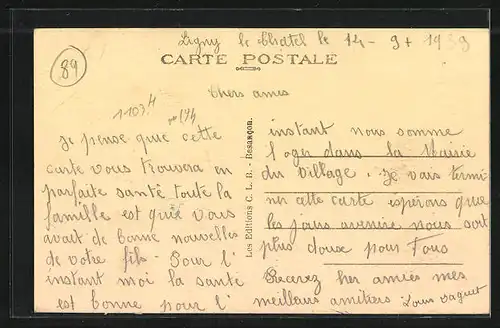 Ligny le Chatel le 14 - 9 + 1939
89
CARTE POSTALE
Chers amis
1103 H
Je pense que cette
carte vous trouvera en
parfaite santé toute la
famille est que vous
avait de bonne nouvelles
de votre fils. Pour l'
instant moi la sante
est bonne pour l'
Les Editions C. L. B. - Besançon.
instant nous somme
loger dans la Mairie
du village. Je vais termi
ner cette carte esperons que
les jours avenire nous soit
plus doux pour Tous
Recevez cher amies mes
meilleurs amitiers Louis Vaquet